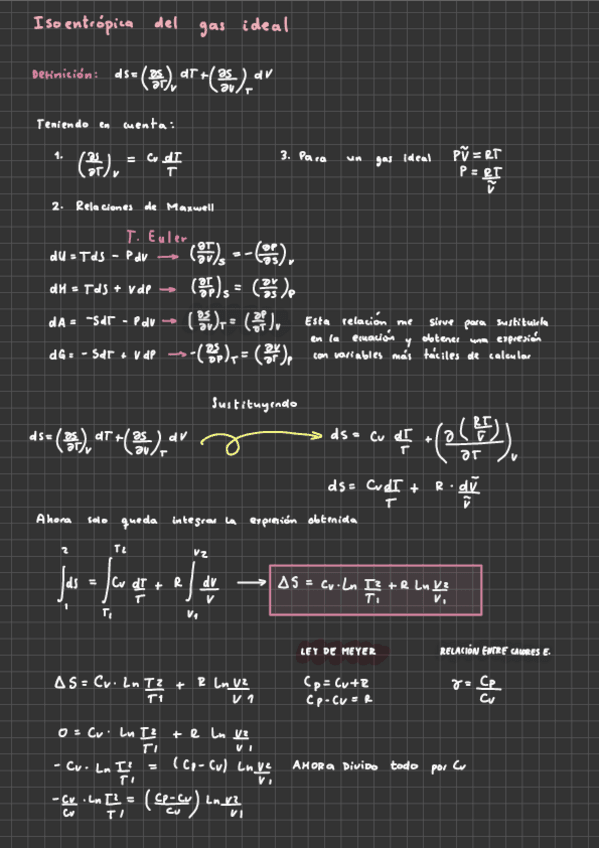 Isoentrópica del gas ideal
Definición: dS=(∂S/∂T)_V dT+(∂S/∂V)_T dV
Teniendo en cuenta:
1. (∂S/∂T)_V = Cv dT/T
3. Para un gas ideal PṼ=RT
P=RT/Ṽ
2. Relaciones de Maxwell
T. Euler
dU=TdS - PdV → (∂T/∂V)_S = -(∂P/∂S)_V
dH=TdS + VdP → (∂T/∂P)_S = (∂V/∂S)_P
dA= -SdT - PdV → (∂S/∂V)_T = (∂P/∂T)_V
Esta relación me sirve para sustituirla
en la ecuación y obtener una expresión
con variables más fáciles de calcular
dG= -SdT + VdP → -(∂S/∂P)_T = (∂V/∂T)_P
Sustituyendo
dS=(∂S/∂T)_V dT+(∂S/∂V)_T dV → dS= Cv dT/T +(∂(RT/Ṽ)/∂T)_V
dS= Cv dT/T + R · dṼ/Ṽ
Ahora solo queda integrar la expresión obtenida
∫₁² dS = ∫_T1^T2 Cv dT/T + R ∫_V1^V2 dV/V → ΔS = Cv·Ln T2/T1 + R Ln V2/V1
LEY DE MEYER
RELACIÓN ENTRE CALORES E.
ΔS= Cv· Ln T2/T1 + R Ln V2/V1
Cp=Cv+R
Cp-Cv = R
γ= Cp/Cv
0= Cv· Ln T2/T1 + R Ln V2/V1
-Cv· Ln T2/T1 = (Cp-Cv) Ln V2/V1 AHORA Divido todo por Cv
-Cv/Cv · Ln T2/T1 = (Cp-Cv/Cv) Ln V2/V1